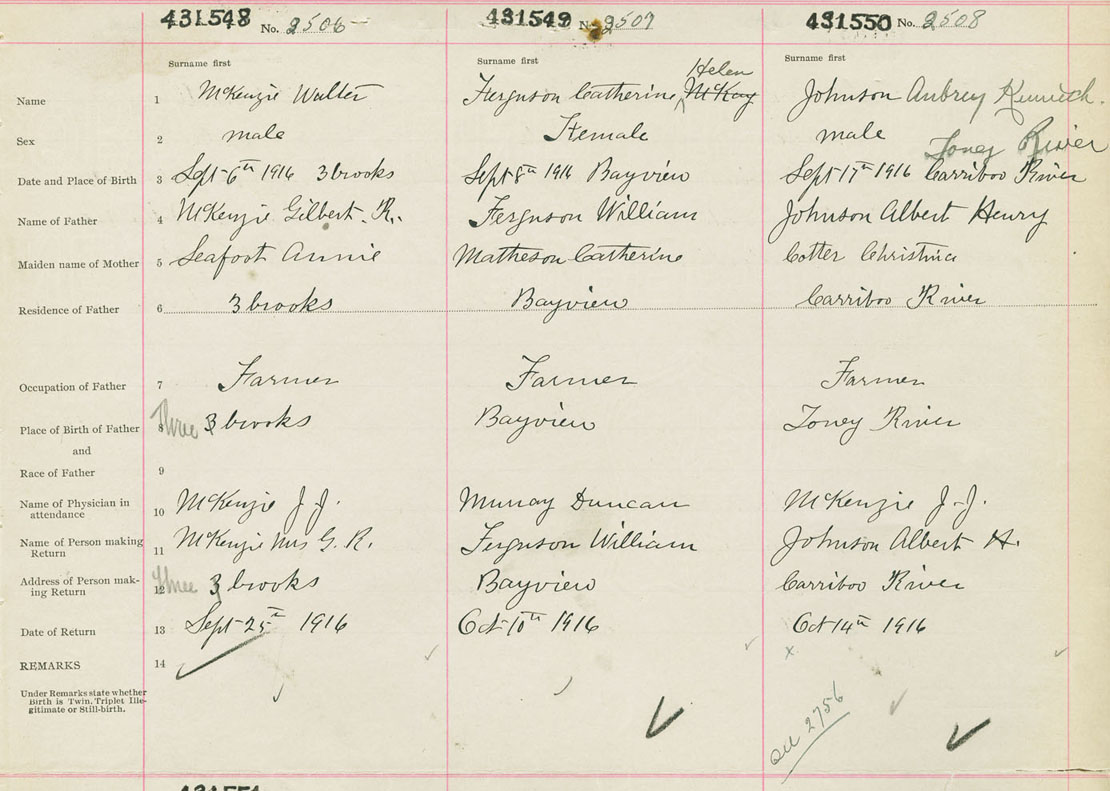 431548 No. 2506 431549 No. 2507 431550 No. 2508
Surname first Surname first Surname first
Helen
Name 1 McKenzie Walter Ferguson Catherine McKay Johnson Aubrey
Sex 2 male Female male Toney River
Date and Place of Birth 3 Sept 6th 1916 3 brooks Sept 8th 1916 Bayview Sept 17th 1916 Carriboo River
Name of Father 4 McKenzie Gilbert R. Ferguson William Johnson Albert Henry
Maiden name of Mother 5 Seafoot Annie Matheson Catherine Cotter Christina
Residence of Father 6 3 brooks Bayview Carriboo River
Occupation of Father 7 Farmer Farmer Farmer
Place of Birth of Father 8 Three 3 brooks Bayview Toney River
and
Race of Father 9
Name of Physician in
attendance 10 McKenzie J.J. Murray Duncan McKenzie J.J.
Name of Person making
Return 11 McKenzie Mrs G. R. Ferguson William Johnson Albert H.
Address of Person mak-
ing Return 12 Three 3 brooks Bayview Carriboo River
Date of Return 13 Sept 25th 1916 Oct 10th 1916 Oct 14th 1916
REMARKS 14 x
Under Remarks state whether
Birth is Twin, Triplet Ille-
gitimate or Still-birth.
2756